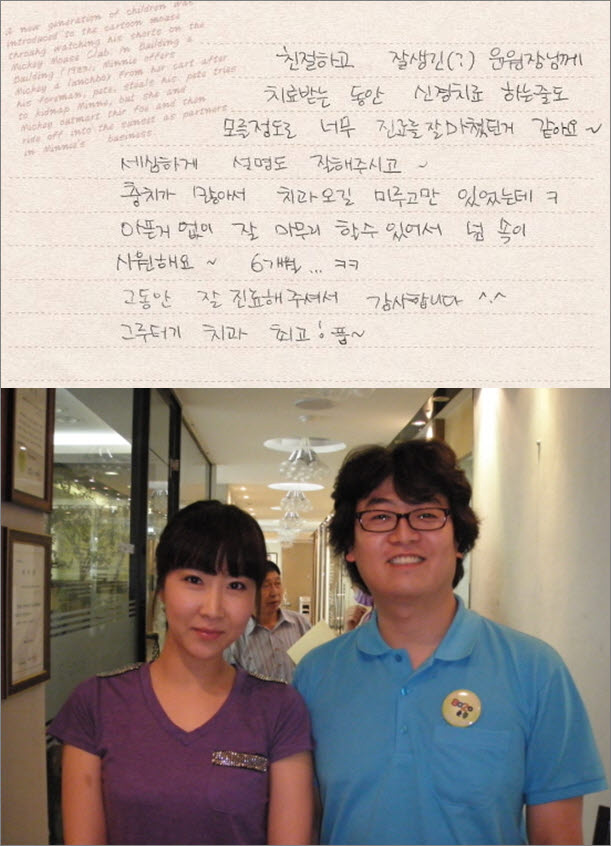 A new generation of children was
introduced to the cartoon mouse
throuhg watching his shorts on the
Mickey Mouse Club. In Building a
Building (1933), Minnie offers
Mickey a lunchbox From her cart after
his foreman, pete, steals his pete tries
to kidnap Minne, but she and
Mickey outmart thir fou and then
rise off into the sunset as partners
in Minnie's business.
친절하고 잘생긴(?) 윤원장님께
치료받는 동안 신경치료 하는줄도
모를정도로 너무 진료를 잘 마쳤던거 같아요~
세심하게 설명도 잘해주시고~
충치가 많아서 치과오길 미루고만 있었는데 ㅋ
아픈거 없이 잘 마무리 할수 있어서 넘 속이
시원해요~ 6개월... ㅋㅋ
그동안 잘 진료해주셔서 감사합니다 ^.^
그루터기 치과 최고! 풉~